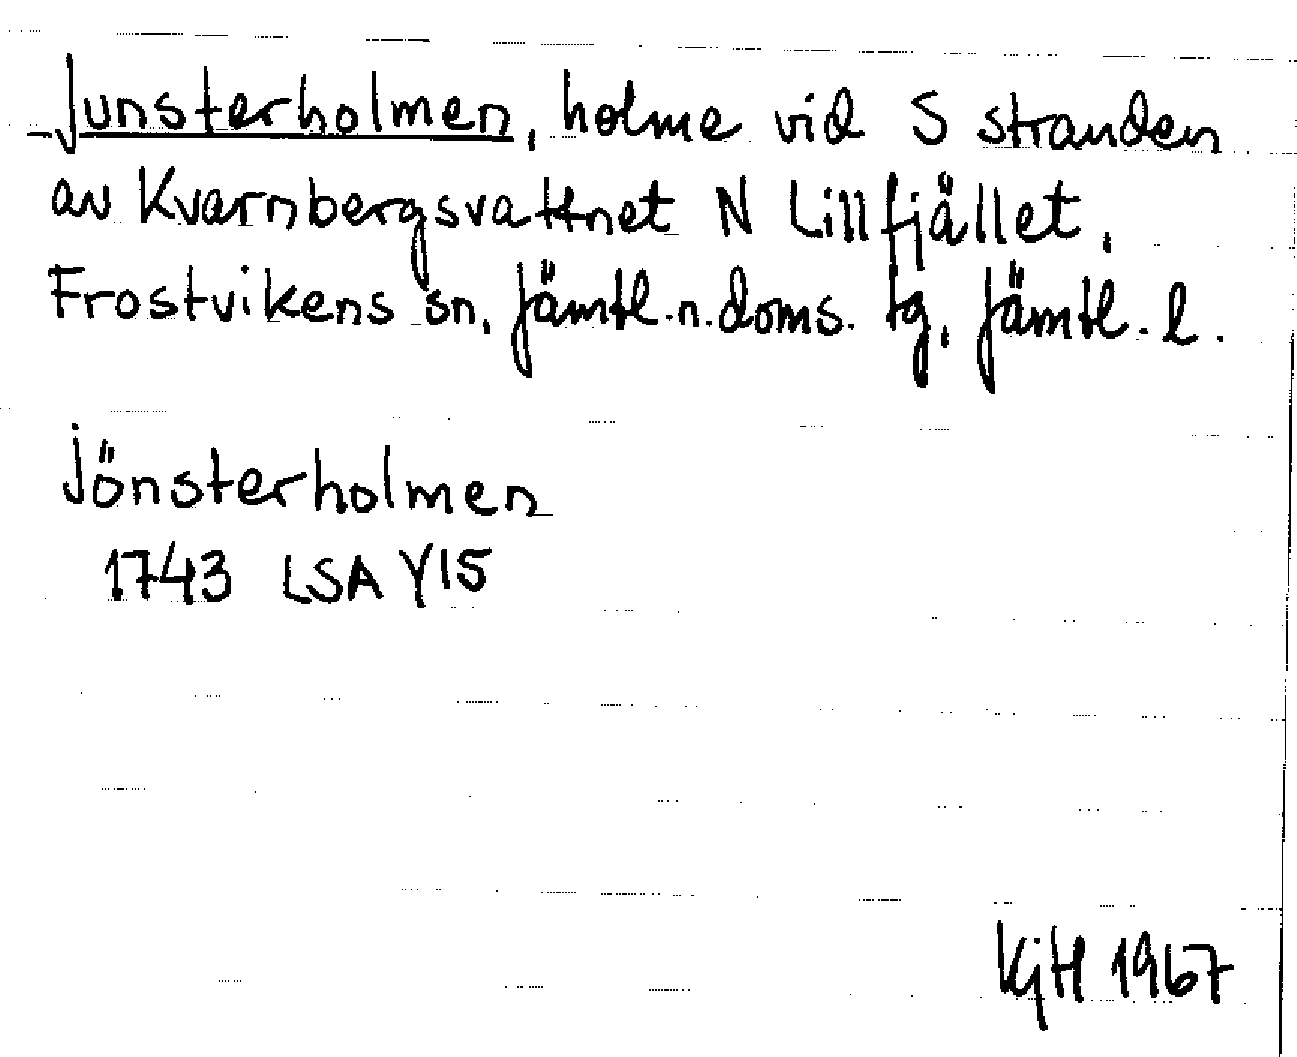 Junsterholmen, holme vid S stranden
av Kvarnbergsvattnet N Lillfjället,
Frostvikens sn, Jämtl.n.doms. tg, Jämtl. l.
Jönsterholmen
1743 LSA Y15
KjH 1967